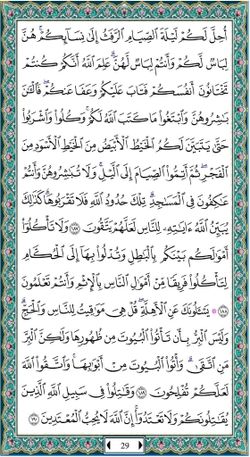 أُحِلَّ لَكُمْ لَيْلَةَ ٱلصِّيَامِ ٱلرَّفَثُ إِلَىٰ نِسَآئِكُمْ ۚ هُنَّ
لِبَاسٌ لَّكُمْ وَأَنتُمْ لِبَاسٌ لَّهُنَّ ۗ عَلِمَ ٱللَّهُ أَنَّكُمْ كُنتُمْ
تَخْتَانُونَ أَنفُسَكُمْ فَتَابَ عَلَيْكُمْ وَعَفَا عَنكُمْ ۖ فَٱلْـَٰٔنَ
بَـٰشِرُوهُنَّ وَٱبْتَغُوا۟ مَا كَتَبَ ٱللَّهُ لَكُمْ ۚ وَكُلُوا۟ وَٱشْرَبُوا۟
حَتَّىٰ يَتَبَيَّنَ لَكُمُ ٱلْخَيْطُ ٱلْأَبْيَضُ مِنَ ٱلْخَيْطِ ٱلْأَسْوَدِ مِنَ
ٱلْفَجْرِ ۖ ثُمَّ أَتِمُّوا۟ ٱلصِّيَامَ إِلَى ٱلَّيْلِ ۚ وَلَا تُبَـٰشِرُوهُنَّ وَأَنتُمْ
عَـٰكِفُونَ فِى ٱلْمَسَـٰجِدِ ۗ تِلْكَ حُدُودُ ٱللَّهِ فَلَا تَقْرَبُوهَا ۗ كَذَٰلِكَ
يُبَيِّنُ ٱللَّهُ ءَايَـٰتِهِۦ لِلنَّاسِ لَعَلَّهُمْ يَتَّقُونَ ١٨٧ وَلَا تَأْكُلُوٓا۟
أَمْوَٰلَكُم بَيْنَكُم بِٱلْبَـٰطِلِ وَتُدْلُوا۟ بِهَآ إِلَى ٱلْحُكَّامِ
لِتَأْكُلُوا۟ فَرِيقًا مِّنْ أَمْوَٰلِ ٱلنَّاسِ بِٱلْإِثْمِ وَأَنتُمْ تَعْلَمُونَ
١٨٨ ۞ يَسْـَٔلُونَكَ عَنِ ٱلْأَهِلَّةِ ۖ قُلْ هِىَ مَوَٰقِيتُ لِلنَّاسِ وَٱلْحَجِّ ۗ
وَلَيْسَ ٱلْبِرُّ بِأَن تَأْتُوا۟ ٱلْبُيُوتَ مِن ظُهُورِهَا وَلَـٰكِنَّ ٱلْبِرَّ
مَنِ ٱتَّقَىٰ ۗ وَأْتُوا۟ ٱلْبُيُوتَ مِنْ أَبْوَٰبِهَا ۚ وَٱتَّقُوا۟ ٱللَّهَ
لَعَلَّكُمْ تُفْلِحُونَ ١٨٩ وَقَـٰتِلُوا۟ فِى سَبِيلِ ٱللَّهِ ٱلَّذِينَ
يُقَـٰتِلُونَكُمْ وَلَا تَعْتَدُوٓا۟ ۚ إِنَّ ٱللَّهَ لَا يُحِبُّ ٱلْمُعْتَدِينَ ١٩٠
29